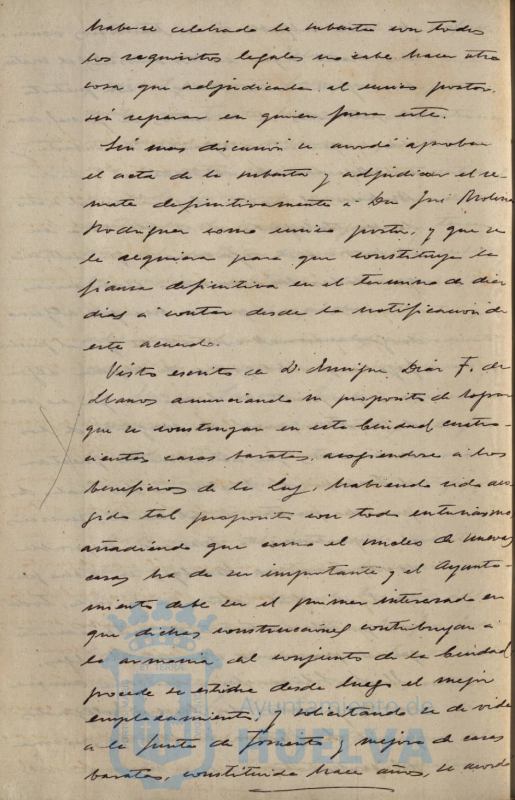 haberse celebrado la subasta con todos
los requisitos legales no cabe hacer otra
cosa que adjudicarla al unico postor,
sin reparar en quien fuera este.
Sin mas discusión se acordó aprobar
el acta de la subasta y adjudicar el re-
mate definitivamente á Don José Molina
Rodriguez como unico postor, y que se
le requiera para que constituya la
fianza definitiva en el termino de diez
dias á contar desde la notificación de
este acuerdo.
Visto escrito de D. Enrique Diaz F. de
Llanos anunciando su proposito de lograr
que se construyan en esta Ciudad cuatro-
cientas casas baratas, acogiendose á los
beneficios de la Ley, habiendo sido aco-
gido tal proposito con todo entusiasmo
añadiendo que como el nucleo de nuevas
casas ha de ser importante y el Ayunta-
miento debe ser el primer interesado en
que dichas construcciones contribuyan á
la armonia del conjunto de la Ciudad
procede se estudie desde luego el mejor
emplazamiento y solicitando se de vida
a la Junta de fomento y mejora de casas
baratas, constituida hace años, se acordó
Ayuntamiento de
HUELVA